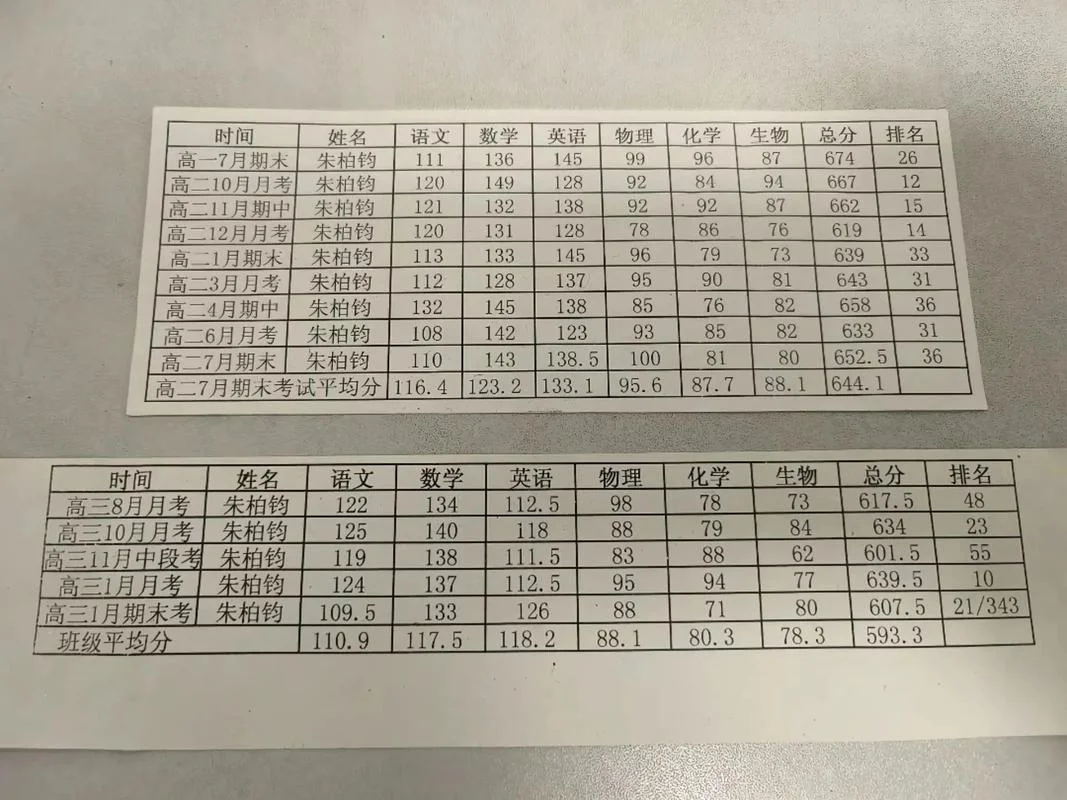 时间 姓名 语文 数学 英语 物理 化学 生物 总分 排名
高一7月期末 朱柏钧 111 136 145 99 96 87 674 26
高二10月月考 朱柏钧 120 149 128 92 84 94 667 12
高二11月期中 朱柏钧 121 132 138 92 92 87 662 15
高二12月月考 朱柏钧 120 131 128 78 86 76 619 14
高二1月期末 朱柏钧 113 133 145 96 79 73 639 33
高二3月月考 朱柏钧 112 128 137 95 90 81 643 31
高二4月期中 朱柏钧 132 145 138 85 76 82 658 36
高二6月月考 朱柏钧 108 142 123 93 85 82 633 31
高二7月期末 朱柏钧 110 143 138.5 100 81 80 652.5 36
高二7月期末考试平均分 116.4 123.2 133.1 95.6 87.7 88.1 644.1
时间 姓名 语文 数学 英语 物理 化学 生物 总分 排名
高三8月月考 朱柏钧 122 134 112.5 98 78 73 617.5 48
高三10月月考 朱柏钧 125 140 118 88 79 84 634 23
高三11月中段考 朱柏钧 119 138 111.5 83 88 62 601.5 55
高三1月月考 朱柏钧 124 137 112.5 95 94 77 639.5 10
高三1月期末考 朱柏钧 109.5 133 126 88 71 80 607.5 21/343
班级平均分 110.9 117.5 118.2 88.1 80.3 78.3 593.3